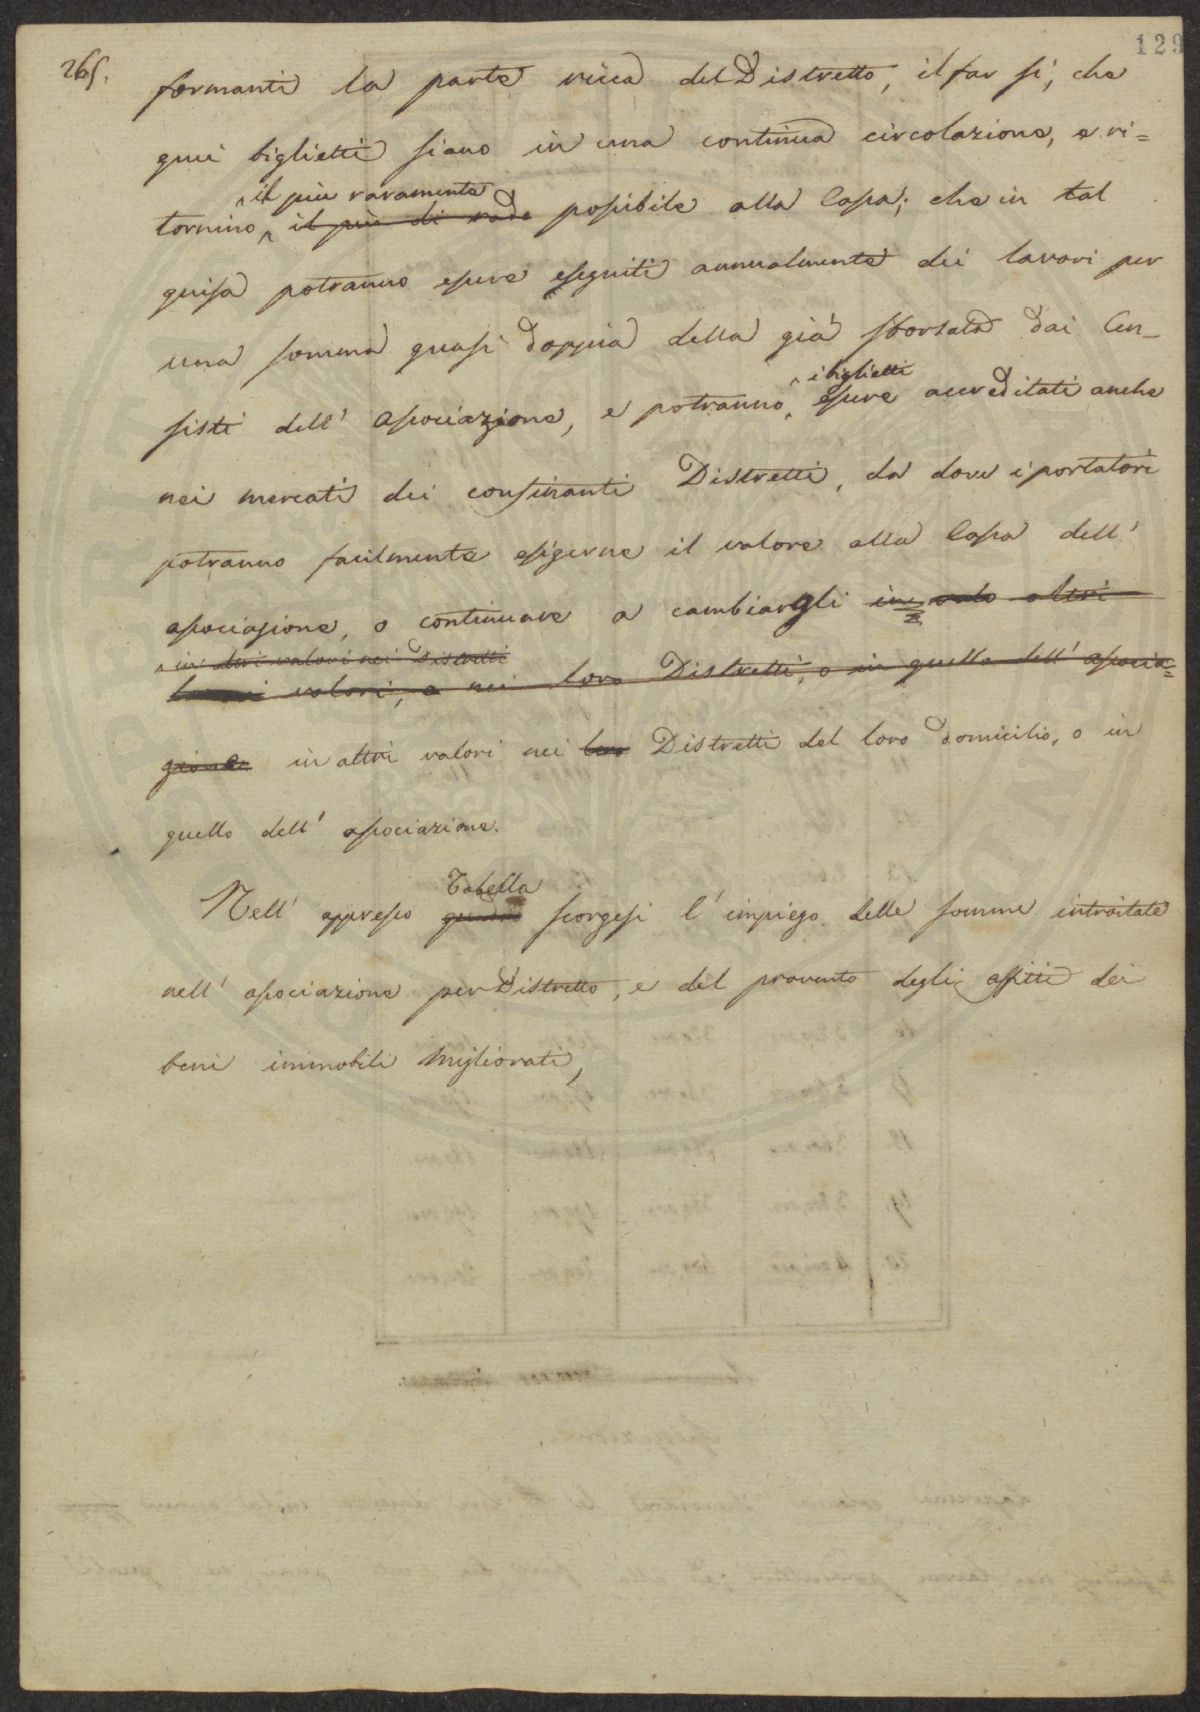 129
265.
formanti la parte ricca del Distretto, il far sì, che
quei biglietti siano in una continua circolazione, e ri=
il più raramente
tornino il più di rado possibile alla Cassa; che in tal
guisa potranno essere eseguiti annualmente dei lavori per
una somma quasi doppia della già sborsata dai Cen-
i biglietti
sisti dell' associazione, e potranno essere accreditati anche
nei mercati dei confinanti Distretti, da dove i portatori
potranno facilmente esigerne il valore alla Cassa dell'
associazione, o continuare a cambiargli in altri
in altri valori nei Distretti
valori, o nei loro Distretti, o in quello dell' associa=
zione in altri valori nei loro Distretti del loro domicilio, o in
quello dell' associazione.
Tabella
Nell' appresso quadro scorgesi l' impiego delle somme introitate
nell' associazione per Distretto, e del provento degli affitti dei
beni immobili migliorati,